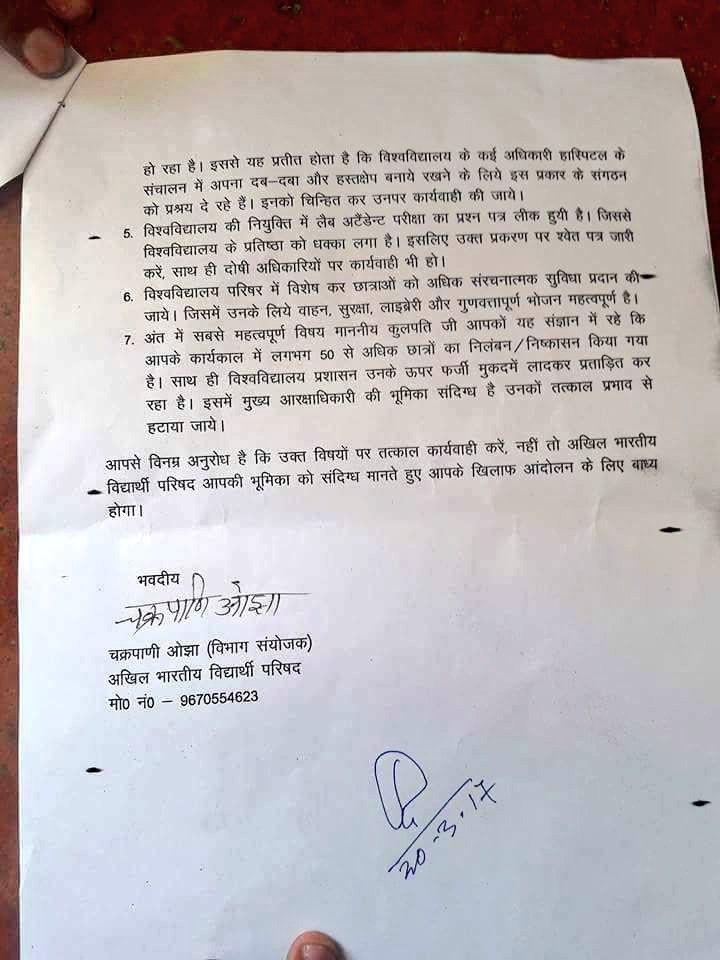 हो रहा है। इससे यह प्रतीत होता है कि विश्वविद्यालय के कई अधिकारी हास्पिटल के
संचालन में अपना दब–दबा और हस्तक्षेप बनाये रखने के लिये इस प्रकार के संगठन
को प्रश्रय दे रहे हैं। इनको चिन्हित कर उनपर कार्यवाही की जाये।
5. विश्वविद्यालय की नियुक्ति में लैब अटैंडेन्ट परीक्षा का प्रश्न पत्र लीक हुयी है। जिससे
विश्वविद्यालय के प्रतिष्ठा को धक्का लगा है। इसलिए उक्त प्रकरण पर श्वेत पत्र जारी
करें, साथ ही दोषी अधिकारियों पर कार्यवाही भी हो।
6. विश्वविद्यालय परिषर में विशेष कर छात्राओं को अधिक संरचनात्मक सुविधा प्रदान की
जाये। जिसमें उनके लिये वाहन, सुरक्षा, लाइब्रेरी और गुणवत्तापूर्ण भोजन महत्वपूर्ण है।
7. अंत में सबसे महत्वपूर्ण विषय माननीय कुलपति जी आपकों यह संज्ञान में रहे कि
आपके कार्यकाल में लगभग 50 से अधिक छात्रों का निलंबन/निष्कासन किया गया
है। साथ ही विश्वविद्यालय प्रशासन उनके ऊपर फर्जी मुकदमें लादकर प्रताड़ित कर
रहा है। इसमें मुख्य आरक्षाधिकारी की भूमिका संदिग्ध है उनकों तत्काल प्रभाव से
हटाया जाये।
आपसे विनम्र अनुरोध है कि उक्त विषयों पर तत्काल कार्यवाही करें, नहीं तो अखिल भारतीय
विद्यार्थी परिषद आपकी भूमिका को संदिग्ध मानते हुए आपके खिलाफ आंदोलन के लिए बाध्य
होगा।
भवदीय
चक्रपाणि ओझा
चक्रपाणी ओझा (विभाग संयोजक)
अखिल भारतीय विद्यार्थी परिषद
मो0 नं0 – 9670554623
20-3-17